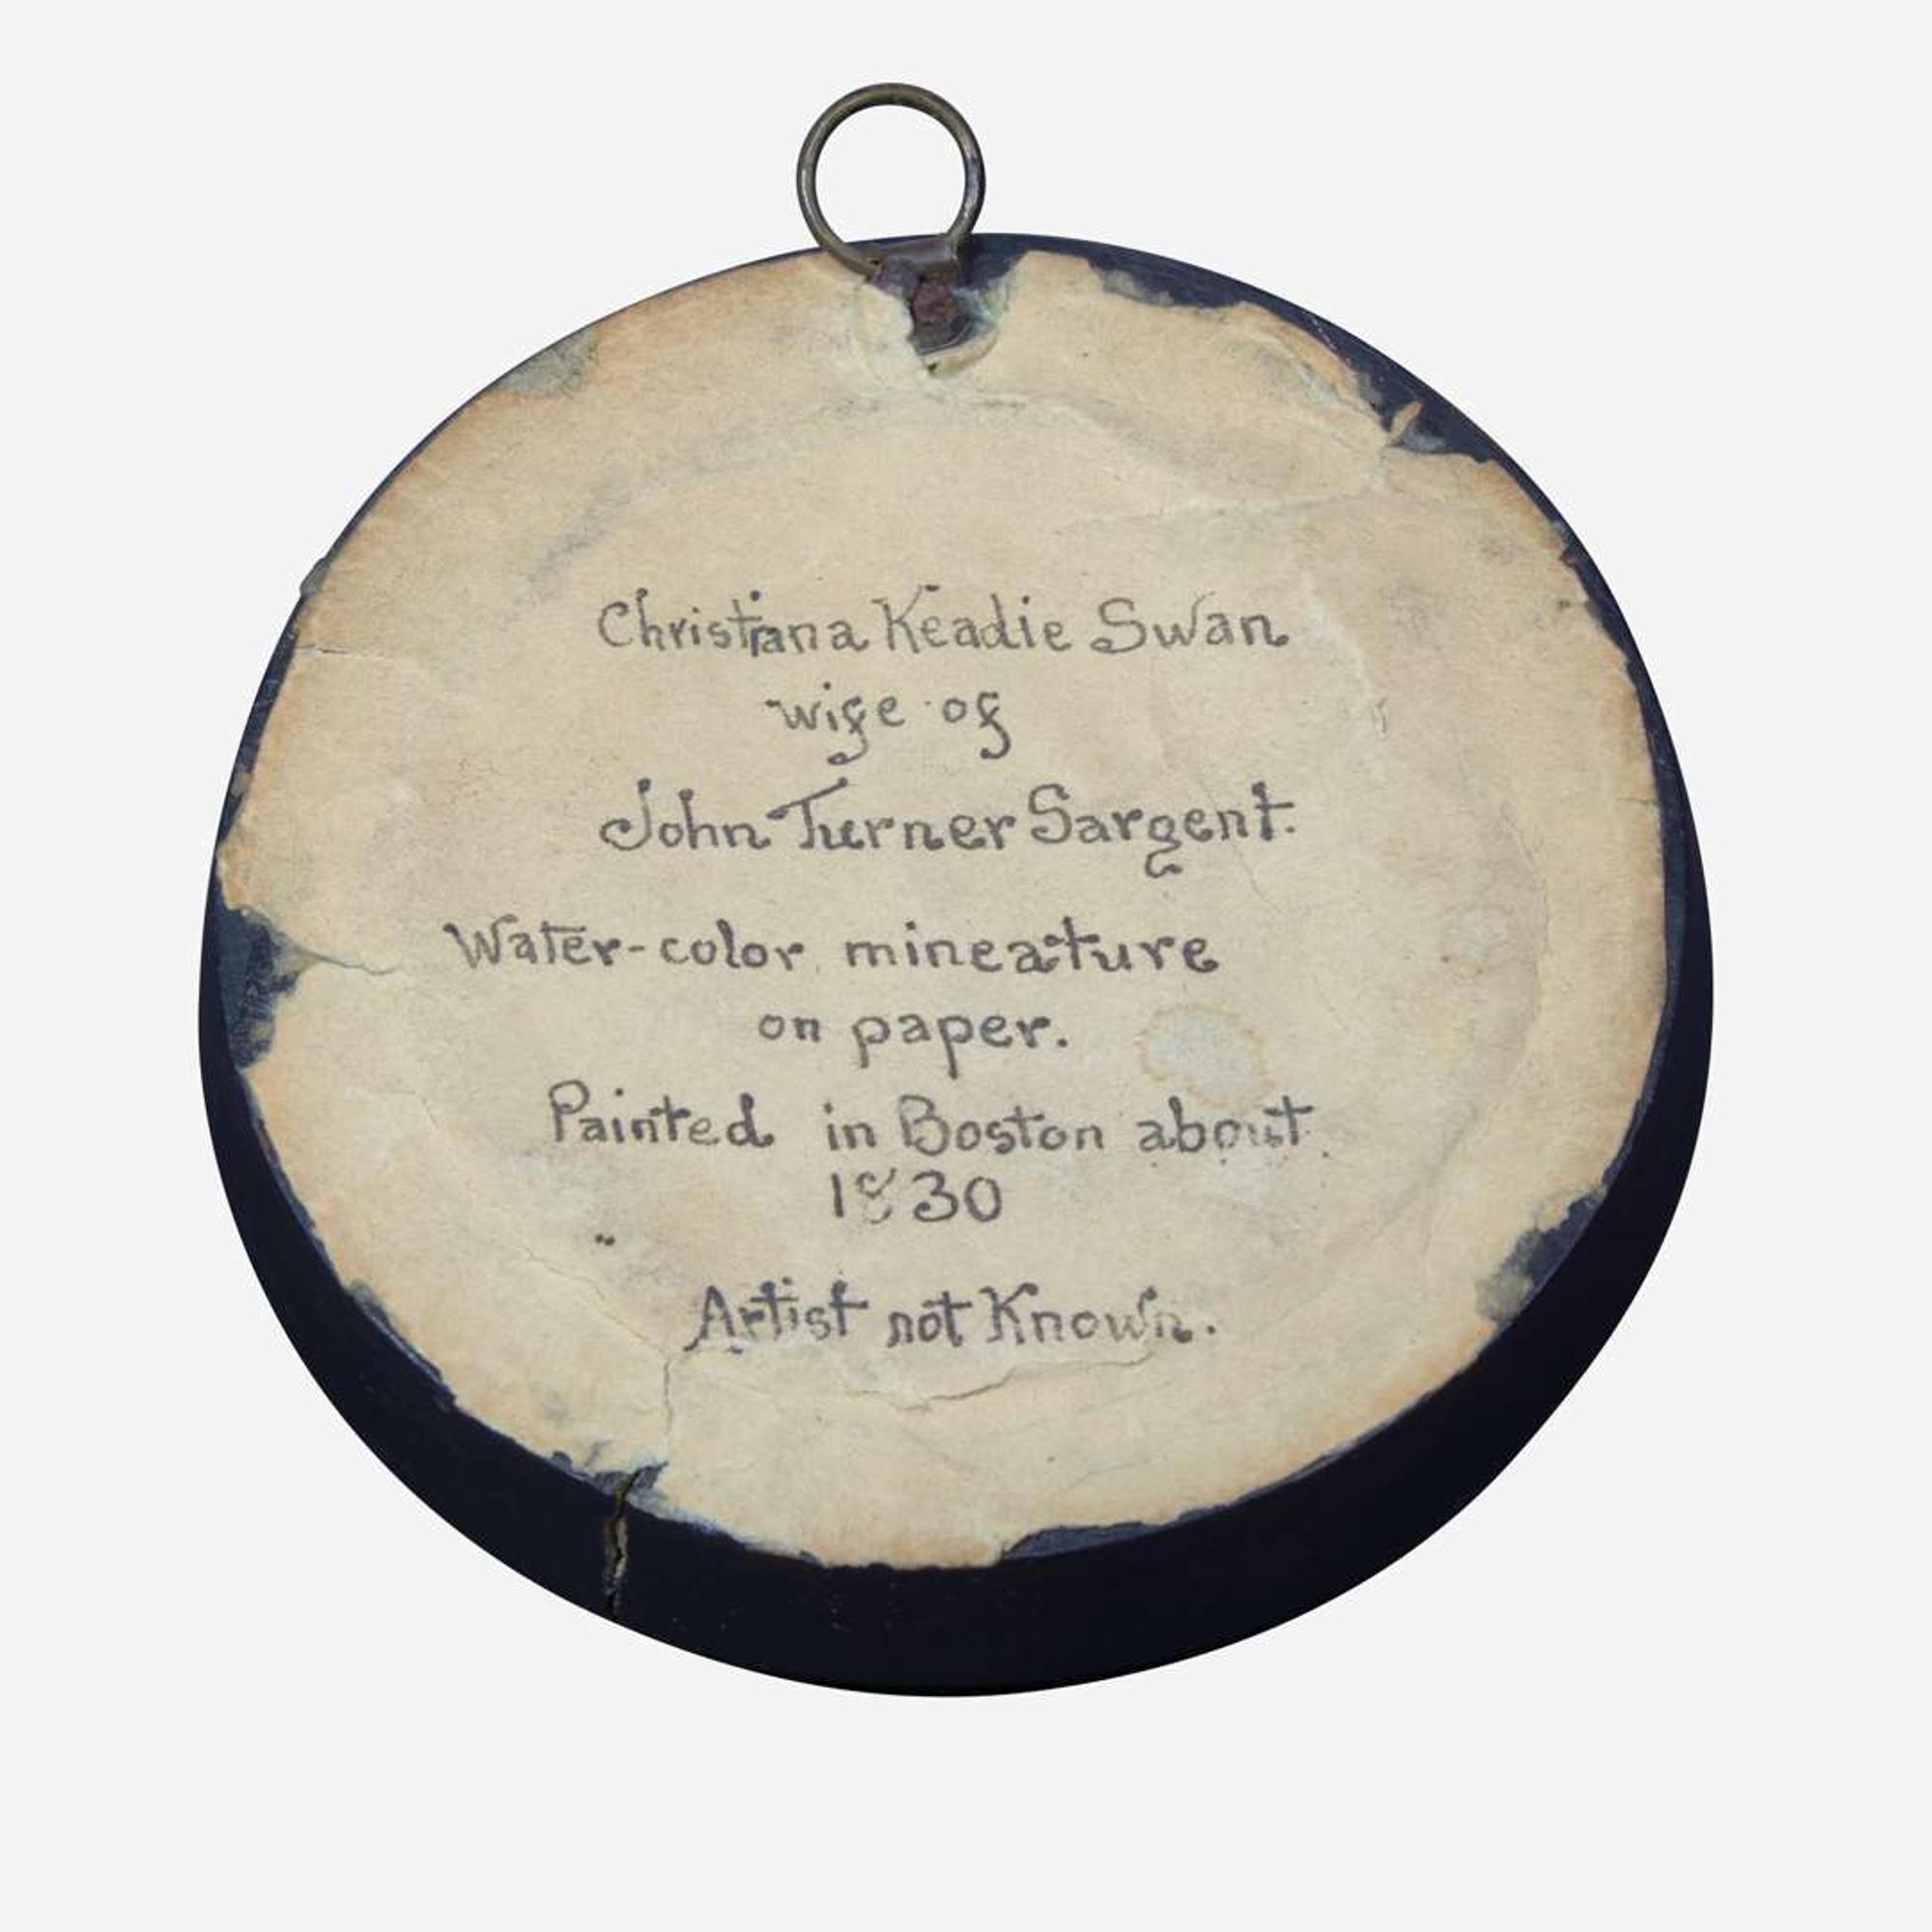 Christiana Keadie Swan
wife of
John Turner Sargent.
Water-color mineature
on paper.
Painted in Boston about
1830
Artist not Known.